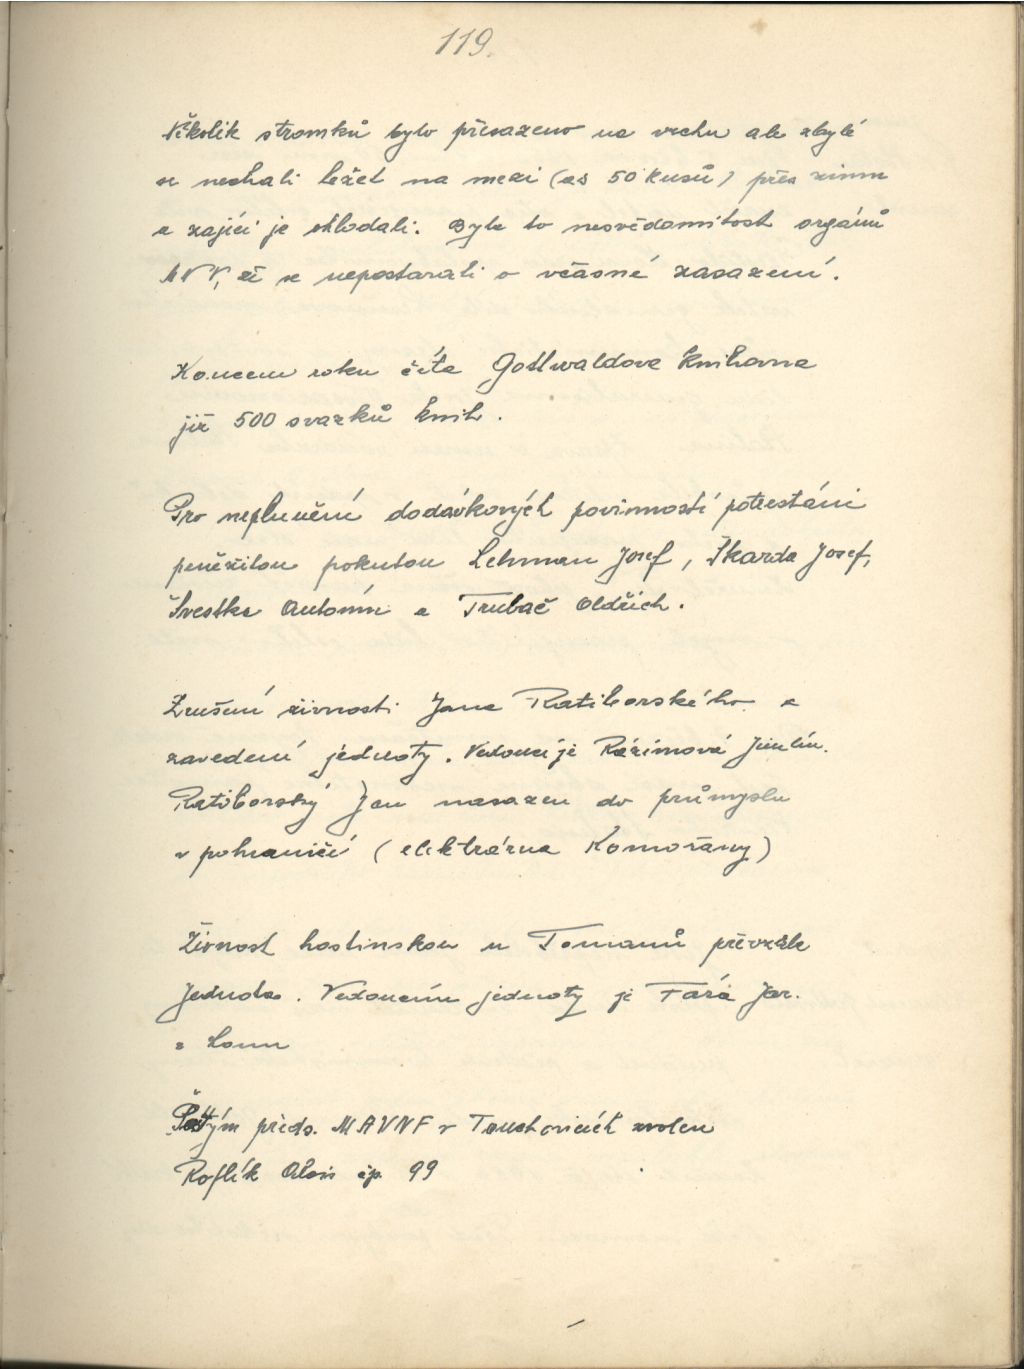 119.
Několik stromků bylo přesazeno na vrchu ale zbylé
se nechali ležet na mezi (as 50 kusů) přes zimu
a zajíci je ohlodali. Byla to nesvědomitost orgánů
MNV, že se nepostarali o včasné zasazení.
Koncem roku číta Gottwaldova knihovna
již 500 svazků knih.
Pro neplnění dodávkových povinností potrestáni
peněžitou pokutou Lehman Josef, Škarda Josef,
Švestka Antonín a Trubač Oldřich.
Zrušení živnosti Jana Ratiborského a
zavedení jednoty. Vedoucí je Rázimová
Ratiborský Jan nasazen do průmyslu
v pohraničí (elektrárna Komořany)
Živnost hostinskou u Tomanů převzala
Jednota. Vedoucím jednoty je Fára Jar.
z Loun
předs. MAVNF v Touchovicích zvolen
Roflík Alois čp. 99